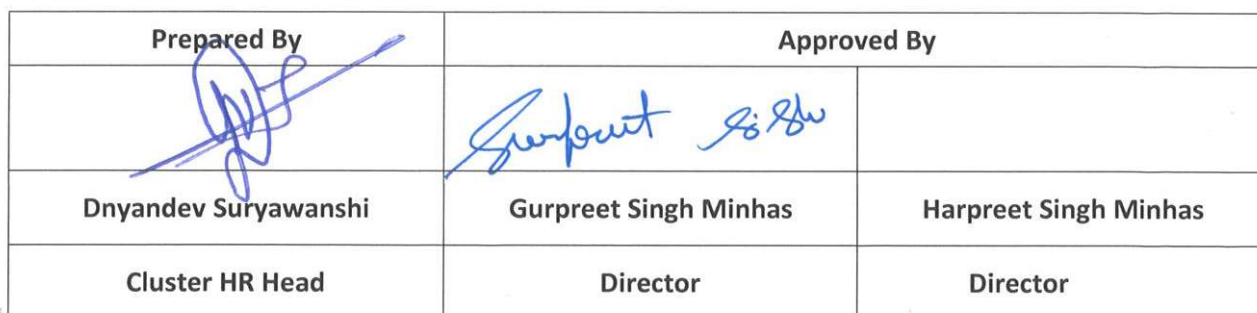 Prepared By Approved By
Gurpreet Singh
Dnyandev Suryawanshi Gurpreet Singh Minhas Harpreet Singh Minhas
Cluster HR Head Director Director